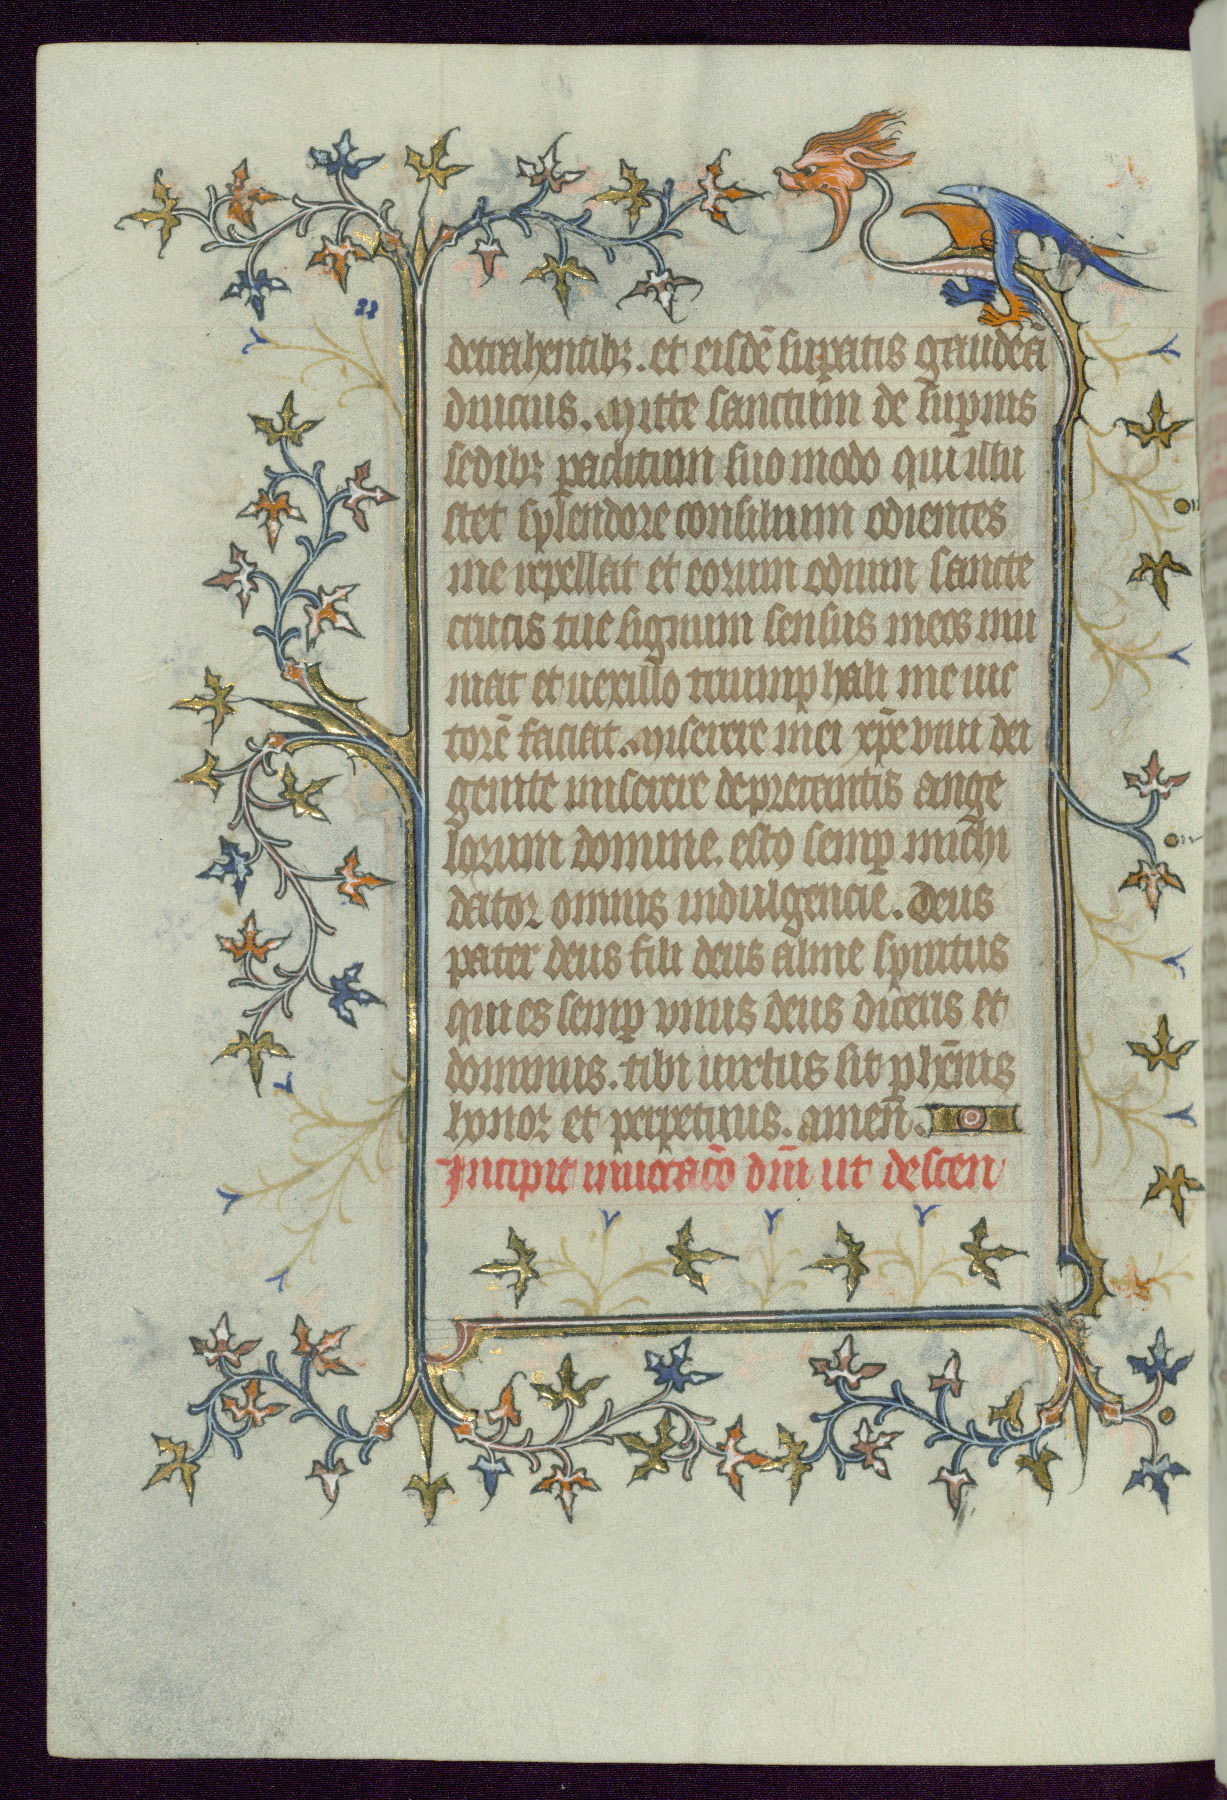 detrahentibꝫ. et eisdē suꝑatis gaudeā
diucius. Mitte sanctum de supnis
sedibꝫ paclitum suo modo qui illu
stret splendore consilium odientes
me repellat et eorum odium sancte
crucis tue signum sensus meos mu
niat et uexillo triumphali me uic
torē faciat. Miserere mei xp̄e viui dei
genite miserere deprecantis ange
lorum domine. esto semp michi
dator omnis indulgencie. Deus
pater deus fili deus alme spiritus
qui es semp vnus deus diceris et
dominus. tibi uirtus sit phēnis
honor et perpetuus. amen̄.
Incipit inuocacō dn̄i ut descen